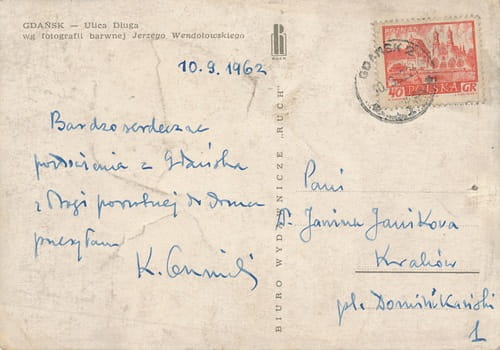 GDAŃSK — Ulica Długa
wg fotografii barwnej Jerzego Wendołowskiego
RUCH
10.9.1962
Bardzo serdeczne
pozdrowienia z Gdańska
z drogi powrotnej do domu
przesyłam
K.
BIURO WYDAWNICZE „RUCH"
GDAŃSK 2
POZNAŃ
40 POLSKA GR
Pani
Dr. Janina Janikova
Kraków
pl. Dominikański
1